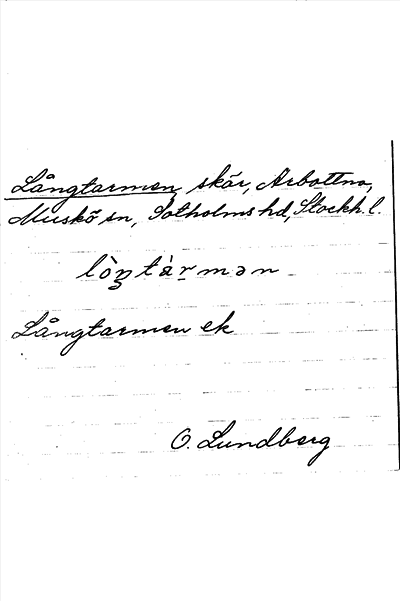 Långtarmen, skär, Arbottna,
Muskö sn, Sotholms hd, Stockh. l.
lòŋtàrmən
Långtarmen ek
O. Lundberg